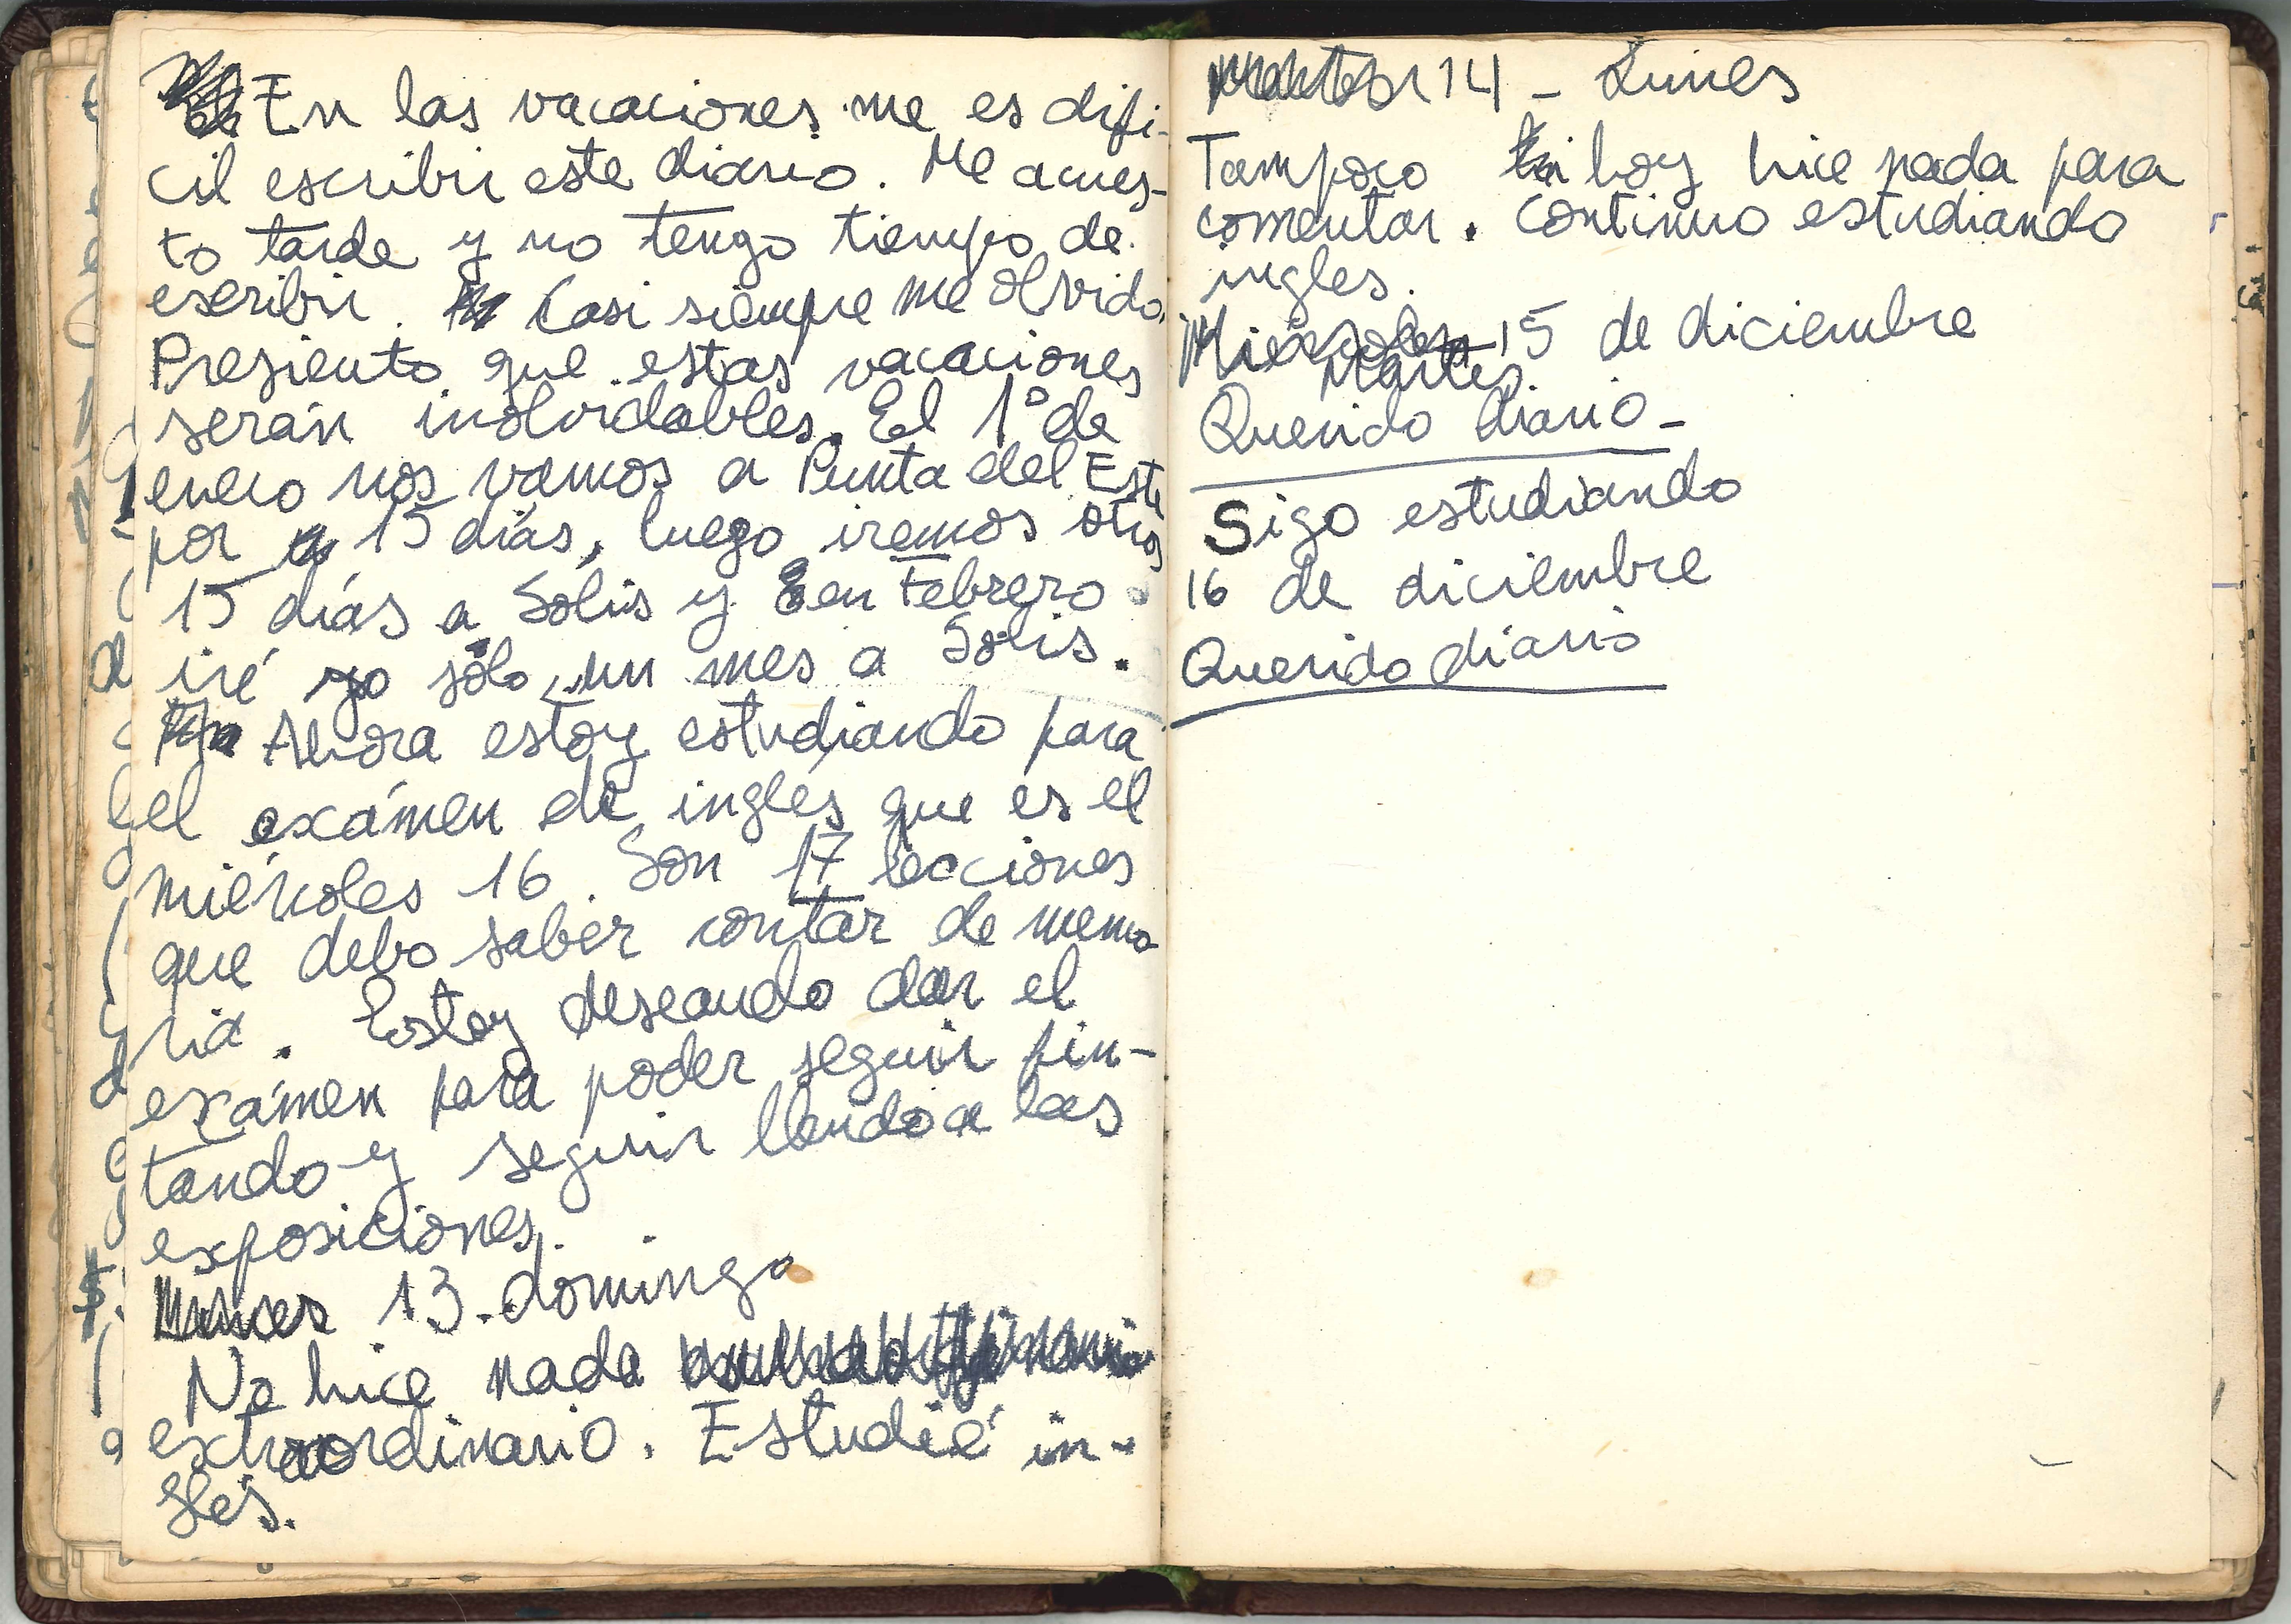 En las vacaciones me es difi-
cil escribir este diario. Me acues-
to tarde y no tengo tiempo de
escribir. Casi siempre me olvido.
Presiento que estas vacaciones
serán inolvidables. El 1° de
enero nos vamos a Punta del Este
por 15 días, luego iremos otros
15 días a Solís y en Febrero
iré yo sólo un mes a Solís.
Ahora estoy estudiando para
el exámen de inglés que es el
miércoles 16. Son 17 lecciones
que debo saber contar de memo
ria. Estoy deseando dar el
exámen para poder seguir pin-
tando y seguir llendo a las
exposiciones.
13. domingo
No hice nada
extraordinario. Estudié in-
glés.
Martes 14 - Lunes
Tampoco hoy hice nada para
comentar. Continuo estudiando
ingles.
Miércoles 15 de diciembre
Martes
Querido diario-
Sigo estudiando
16 de diciembre
Querido diario